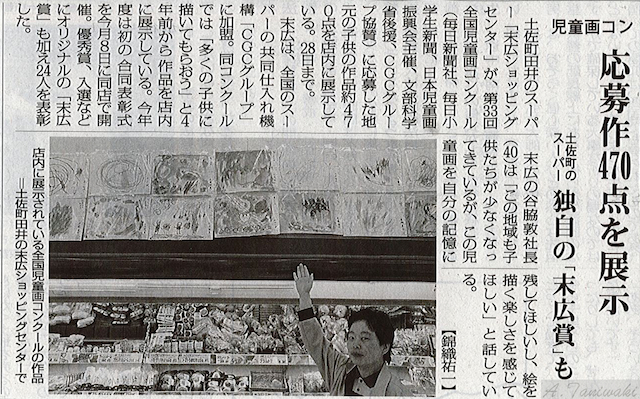 児童画コン
応募作470点を展示
土佐町の
スーパー
独自の「末広賞」も
土佐町田井のスーパ
ー「末広ショッピング
センター」が、第33回
全国児童画コンクール
(毎日新聞社、毎日小
学生新聞、日本児童画
振興会主催、文部科学
省後援、CGCグルー
プ協賛)に応募した地
元の子供の作品約47
0点を店内に展示して
いる。28日まで。
末広は、全国のスー
パーの共同仕入れ機
構「CGCグループ」
に加盟。同コンクール
では「多くの子供に
描いてもらおう」と4
年前から作品を店内
に展示している。今年
度は初の合同表彰式
を今月8日に同店で開
催。優秀賞、入選など
にオリジナルの「末広
賞」も加え24人を表彰
した。
末広の谷脇敦社長
(40)は「この地域も子
供たちが少なくなっ
てきているが、この児
童画を自分の記憶に
残してほしいし、絵を
描く楽しさを感じて
ほしい」と話してい
る。
【錦織祐一】
店内に展示されている全国児童画コンクールの作品
＝土佐町田井の末広ショッピングセンターで
A. Taniwaki